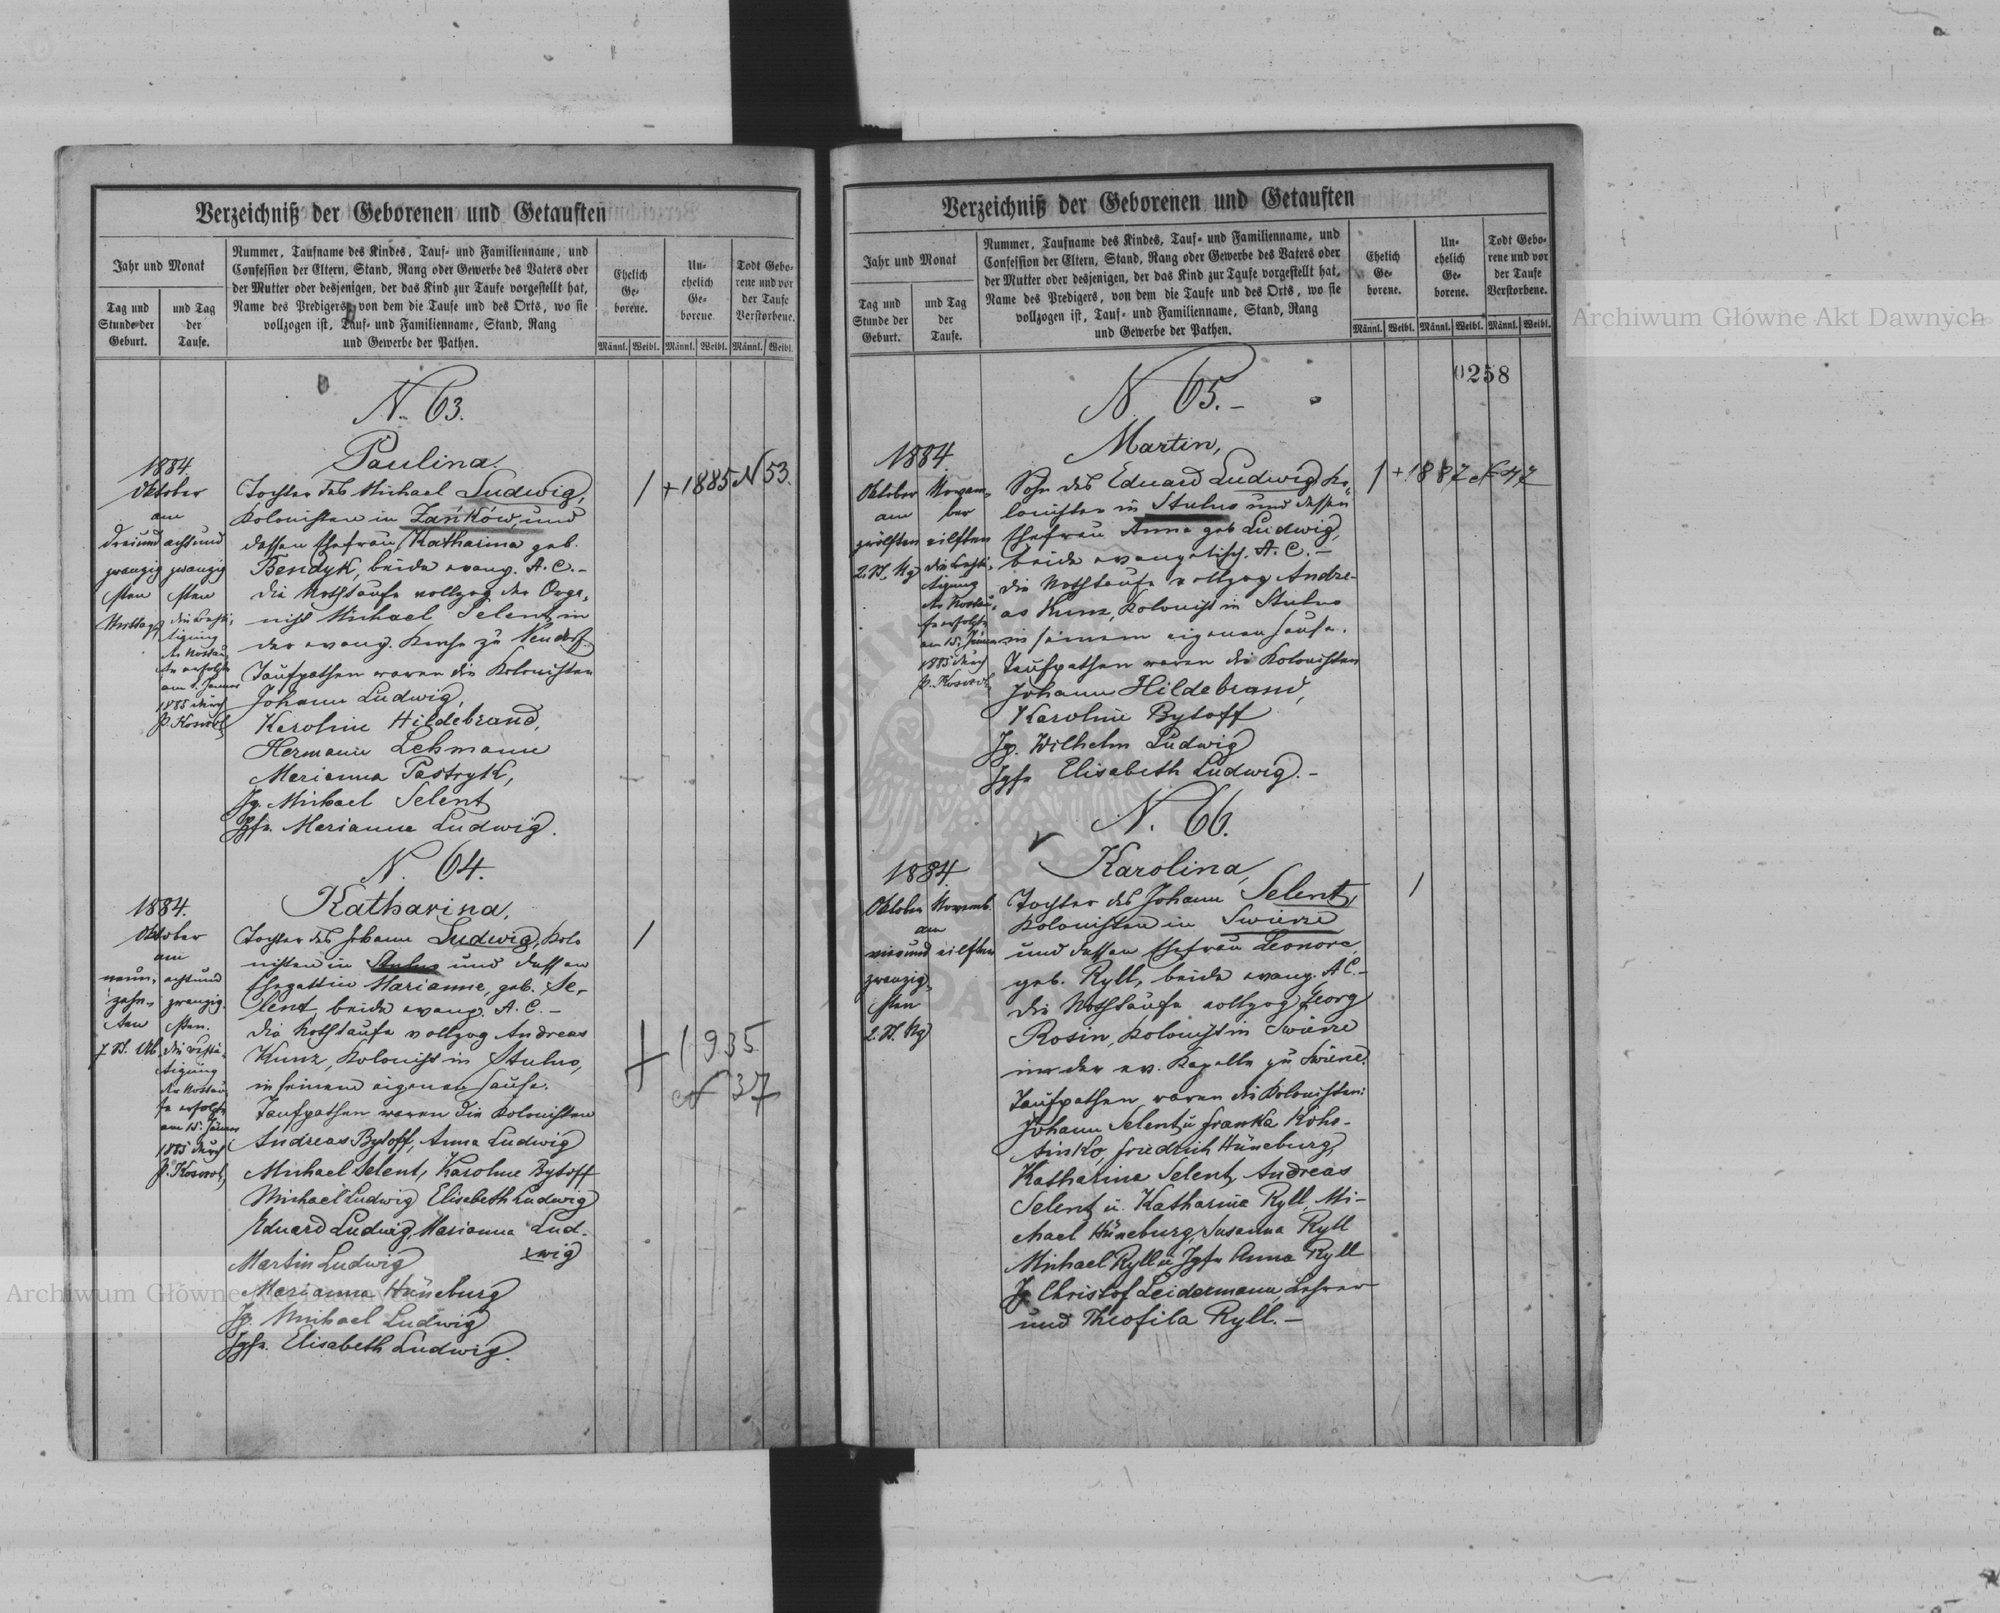 Verzeichniß der Geborenen und Getauften
Jahr und Monat
Tag und Stunde der Geburt.
und Tag der Taufe.
Nummer, Taufname des Kindes, Tauf- und Familienname, und
Confession der Eltern, Stand, Rang oder Gewerbe des Vaters oder
der Mutter oder desjenigen, der das Kind zur Taufe vorgestellt hat,
Name des Predigers, von dem die Taufe und des Orts, wo sie
vollzogen ist, Tauf- und Familienname, Stand, Rang
und Gewerbe der Pathen.
Ehelich Geborene.
Unehelich Geborene
Todt Geborene und vor der Taufe Verstorbene.
Männl. Weibl. Männl. Weibl. Männl. Weibl.
N. 63.
1884.
Oktober
am
dreiund achtund
zwanzig zwanzig
sten sten
Mittag die Bestä-
tigung
der Nottau-
fe erfolgte
am 1. Januar
1885 durch
P. Koswol
Paulina.
Tochter des Michael Ludwig,
Kolonisten in Zańków, und
dessen Ehefrau Katharina geb.
Bendyk, beide evang. A. C. -
die Nothtaufe vollzog der Orga-
nist Michael Selent in
der evang. Kirche zu Neudorf.
Taufpathen waren die Kolonisten
Johann Ludwig,
Karoline Hildebrand,
Hermann Lehmann
Marianna Pastryk,
Jg. Michael Selent
Jgfr. Marianna Ludwig.
/ + 1885 N 53.
N. 64.
1884.
Oktober
am
neun- achtund
zehn- zwanzig-
ten sten.
die Bestä-
tigung
der Nottau-
fe erfolgte
am 15. Januar
1885 durch
P. Koswol,
Katharina,
Tochter des Johann Ludwig, Kolo
nisten in Stulno und dessen
Ehegattin Marianne, geb. Se-
lent, beide evang. A. C. -
die Nothtaufe vollzog Andreas
Kunz, Kolonist in Stulno,
in seinem eigenen Hause.
Taufpathen waren die Kolonisten
Andreas Bytoff, Anna Ludwig
Michael Selent, Karoline Bytoff
Michael Ludwig Elisabeth Ludwig
Eduard Ludwig, Marianna Lud-
wig
Martin Ludwig
Marianna Hüneburg
Jg. Michael Ludwig
Jgfr. Elisabeth Ludwig.
/
+ 1935
N 37
Verzeichniß der Geborenen und Getauften
Jahr und Monat
Tag und Stunde der Geburt.
und Tag der Taufe.
Nummer, Taufname des Kindes, Tauf- und Familienname, und
Confession der Eltern, Stand, Rang oder Gewerbe des Vaters oder
der Mutter oder desjenigen, der das Kind zur Taufe vorgestellt hat,
Name des Predigers, von dem die Taufe und des Orts, wo sie
vollzogen ist, Tauf- und Familienname, Stand, Rang
und Gewerbe der Pathen.
Ehelich Geborene.
Unehelich Geborene.
Todt Geborene und vor der Taufe Verstorbene.
Männl. Weibl. Männl. Weibl. Männl. Weibl.
0258
N. 65. -
1884.
Oktober Novem-
am ber
zwölften eilften
2. St. Ng die Bestä-
tigung
der Nottau-
fe erfolgte
am 15. Januar
1885 durch
P. Koswol,
Martin,
Sohn des Eduard Ludwig, Ko-
lonisten in Stulno und dessen
Ehefrau Anna geb Ludwig,
beide evangelisch. A. C. -
die Nothtaufe vollzog Andre-
as Kunz, Kolonist in Stulno
in seinem eigenen Hause.
Taufpathen waren die Kolonisten
Johann Hildebrand,
Karoline Bytoff
Jg. Wilhelm Ludwig
Jgfr Elisabeth Ludwig. -
/ + 1887 N 47
N. 66.
1884.
Oktober Novemb.
am
vierund eilften
zwanzig-
sten
2. St. Ng
Karolina,
Tochter des Johann Selent,
Kolonisten in Swierze
und dessen Ehefrau Leonore,
geb. Ryll, beide evang. A C. -
die Nothtaufe vollzog Georg
Rosin, Kolonist in Swierze
in der ev. Kapelle zu Swierze.
Taufpathen waren die Kolonisten:
Johann Selent u Franka
Friedrich Hüneburg,
Katharina Selent, Andreas
Selent u. Katharine Ryll, Mi-
chael Hüneburg, Susanna Ryll
Michael Ryll u Jgfr Anna Ryll
Jg. Christof Leidermann, Lehrer
und Theofila Ryll. -
/
Archiwum Główne Akt Dawnych
Archiwum Główne Akt Dawnych